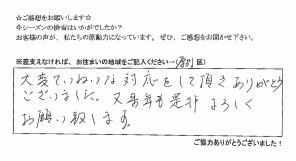 ☆ご感想をお願いします☆
今シーズンの排雪はいかがでしたか？
お客様の声が、私たちの原動力になっています。ぜひ、ご感想をお聞かせ下さい。
※差支えなければ、お住まいの地域をご記入ください→( 区)
大変ていねいな対応をして頂きありがとう
ございました。又来年も是非よろしく
お願い致します。
ご協力ありがとうございました！